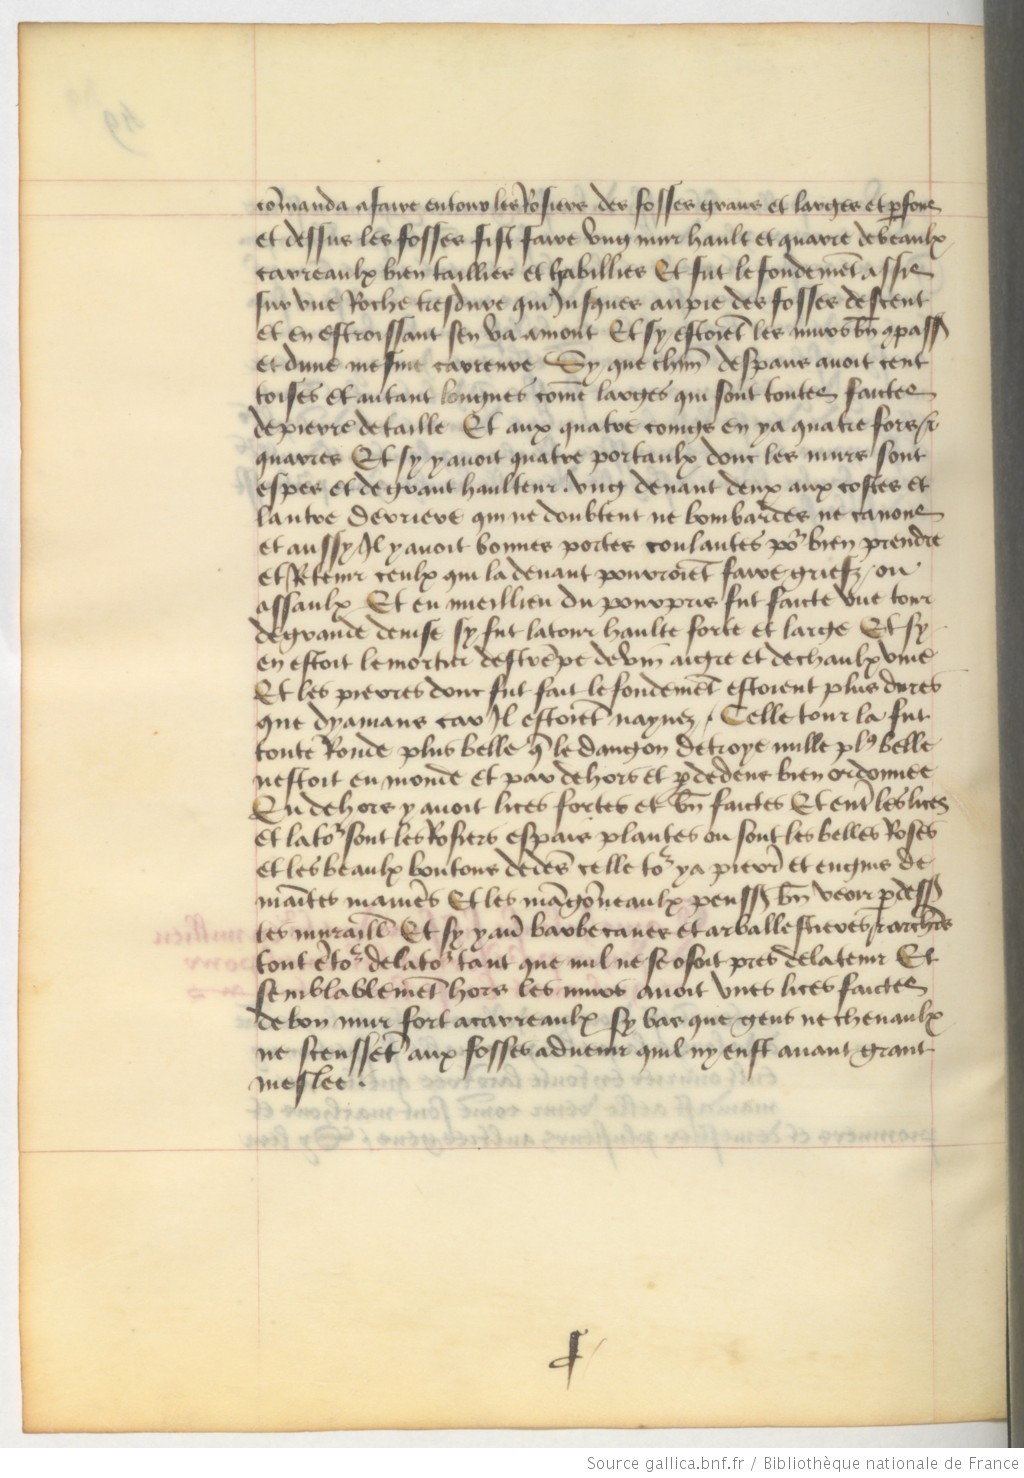 cõmanda a faire entour les Rosiers des fosses grans et larges et pfons
et dessus les fosses fist faire Ung mur hault et quarre de beaulx
carreaulx bien taillies et habillies Et fut le fondemẽt assis
sur une Roche tresdure qui Jusques au pie des fosses descent
et en estroissant sen va amont Et sy estoiẽt les murs bñ ɔpassȝ
et dune mesme carreure Sy que chũn despans avoit cent
toises Et autant longues cõme larges qui sont toutes faictes
de pierre de taille Et aux quatre coings en ya quatre fors et
quarres Et sy y avoit quatre portaulx donc les murs sont
espes et de grant haulteur . ung devant deux aux costes et
lautre derriere qui ne doubtent ne bombardes ne canons
et aussy Il y avoit bonnes portes coulantes po² bien prendre
et Retenir ceulx qui la devant pourroiẽt faire griefz / ou
assaulx Et en meillieu du pourpris fut faicte une tour
de grande devise sy fut la tour haulte forte et large Et sy
en estoit le mortier destrẽpe de vin aigre et de chaulx vive
Et les pierres donc fut fait le fondemẽt estoient plus dures
que dyamans car Il estoiẽt nayvez / Celle tour la fut
toute Ronde plus belle q̃ le dangon de troye mille pl⁹ belle
nestoit en monde et par dehors et p dedens bien ordonnee
En dehors y avoit lices fortes et bñ faictes Et entre les lices
et la to² sont les Rosiers espais plantes ou sont les belles Roses
et les beaulx boutons dedẽs celle to² ya pierr̃ et engins de
maĩtes manieres Et les mãgõneaulx peussȝ bñ veoir p dessȝ
les muraillȝ Et sy y av̄ barbecanes et arballestieres et archieres
tout ẽto² de la to² tant que nul ne se osoit pres de la tenir Et
semblablemẽt hors les murs avoit unes lices faictes
de bon mur fort a carreaulx sy bas que gens ne chevaulx
ne sceussẽt aux fosses advenir quil ny eust avant grant
meslee .
Source gallica.bnf.fr / Bibliothèque nationale de France